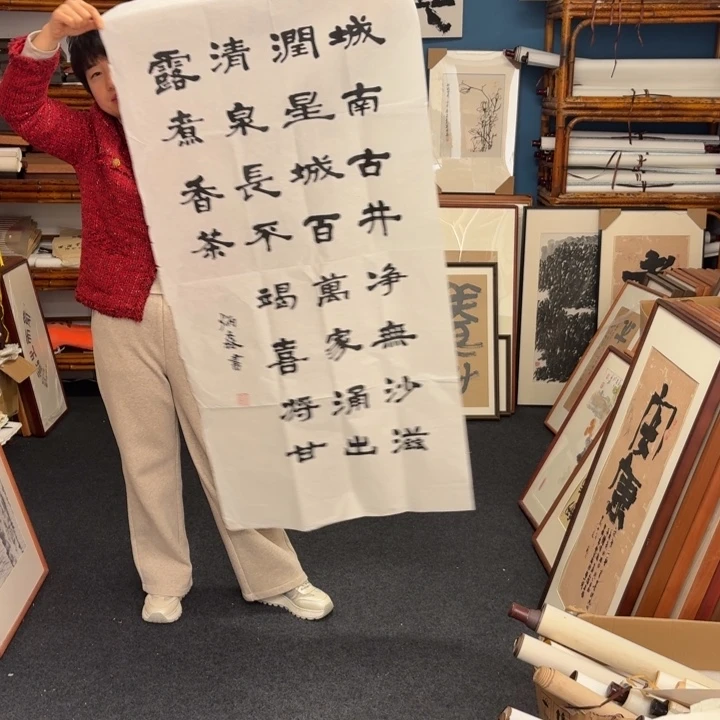 城南古井净無沙滋
潤星城百萬家涌出
清泉長不竭喜将甘
露煮香茶
炳森書